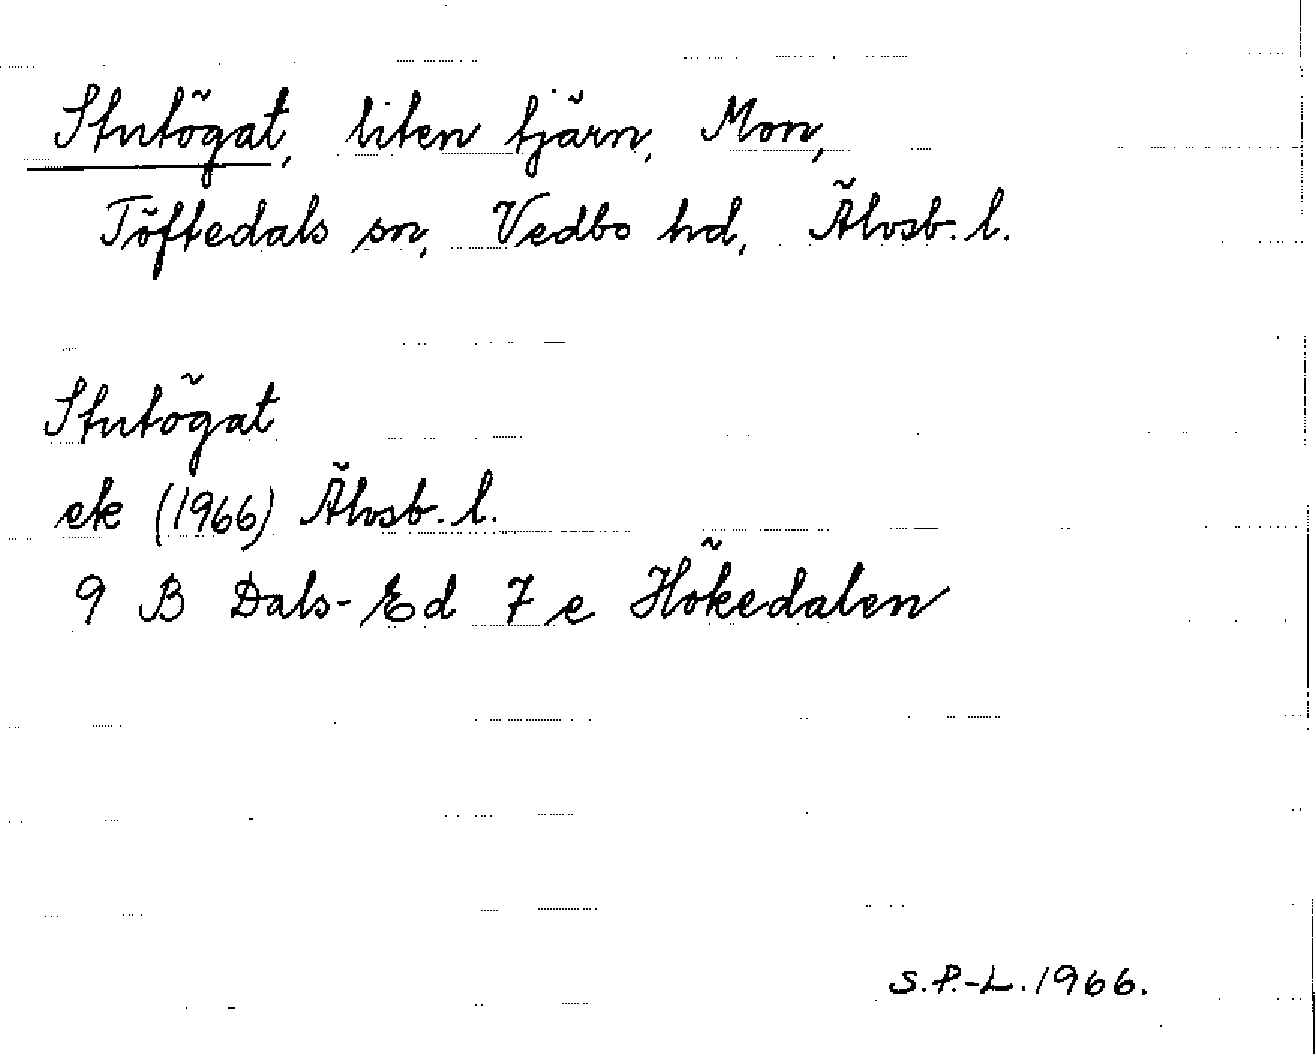 Stutögat, liten tjärn, Mon,
Töftedals sn, Vedbo hd, Älvsb. l.
Stutögat
ek (1966) Älvsb. l.
9 B Dals-Ed 7 e Hökedalen
S.P.-L. 1966.